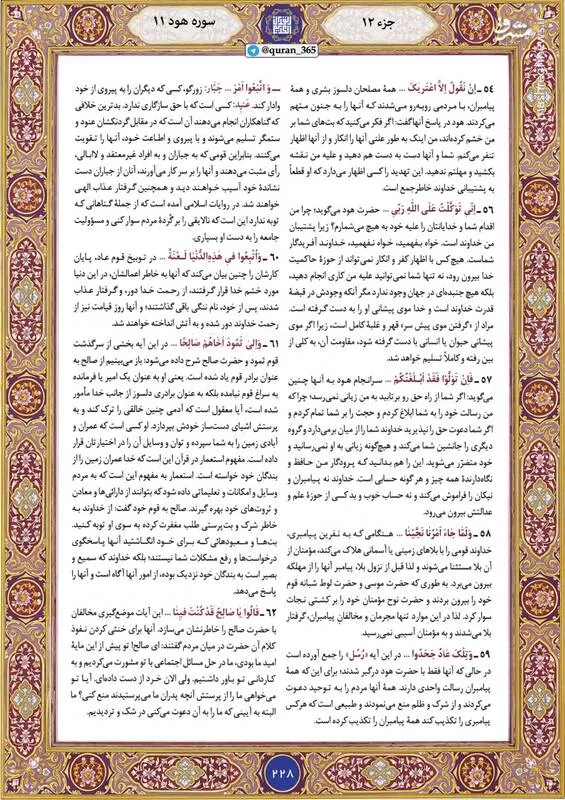 سوره هود ۱۱
جزء ۱۲
مشرق
@quran_365
۵۴ ـ اِنْ نَقُولُ اِلاَّ اعْتَریکَ ... همهٔ مصلحان دلسوز بشری و همهٔ
پیامبران، با مردمی روبه‌رو می‌شدند که آنها را به جنون متهم
می‌کردند. هود در پاسخ آنهاگفت: اگر فکر می‌کنید که بت‌های شما بر
من خشم کرده‌اند، من اینک به طور علنی آنها را انکار و از آنها اظهار
تنفر می‌کنم. شما و آنها دست به دست هم دهید و علیه من نقشه
بکشید و مهلتم ندهید. این تهدید را کسی اظهار می‌دارد که او قطعاً
به پشتیبانی خداوند خاطرجمع است.
۵۶ ـ اِنّی تَوَکَّلْتُ عَلَی اللَّهِ رَبّی ... حضرت هود می‌گوید: چرا من
اقدام شما و خدایانتان را علیه خود به هیچ می‌شمارم؟ زیرا پشتیبان
من خداوند است. خواه بـفهمید، خـواه نـفهمید، خـداونـد آفریدگار
شماست. هیچ کس با اظهار کفر و انکار نمی‌تواند از حوزهٔ حاکمیت
خدا بیرون رود، نه تنها شما نمی‌توانید علیه من کاری انجام دهید،
بلکه هیچ جنبنده‌ای در جهان وجود ندارد مگر آنکه وجودش در قبضهٔ
قدرت خداوند است و خدا موی پیشانی او را به دست گرفته است.
مراد از «گرفتن موی پیش سر» قهر و غلبهٔ کامل است، زیرا اگر موی
پیشانی حیوان یا انسانی با دست گرفته شود، مقاومت آن، به کلی از
بین رفته و کاملاً تسلیم خواهد شد.
۵۷ ـ فَاِنْ تَوَلَّوْا فَقَدْ اَبْـلَغْتُکُمْ ... سرانجام هود به آنها چنین
می‌گوید: اگر شما از راه حق رو برتابید به من زیانی نمی‌رسد؛ چرا که
من رسالت خود را به شما ابلاغ کردم و حجت را بر شما تمام کردم و
اگر شما دعوت حق را نپذیرید خداوند شما را از میان برمی‌دارد و گروه
دیگری را جانشین شما می‌کند و هیچ‌گونه زیانی به او نمی‌رسانید و
خود متضرّر می‌شوید. این را هم بدانید کـه پـرودگار مـن حـافظ و
نگاه‌دارندهٔ همه چیز و هر گونه حسابی است. خداوند نه پیامبران و
نیکان را فراموش می‌کند و نه حساب خوب و بد کسی از حوزهٔ علم و
عدالتش بیرون می‌رود.
۵۸ ـ وَلَمَّا جَاءَ اَمْرُنَا نَجَّیْنَا ... هنگامی که به نفرین پیامبری،
خداوند قومی را با بلاهای زمینی یا آسمانی هلاک می‌کند، مؤمنان از
آن بلا مستثنا می‌شوند و لذا قبل از نزول بلا، پیامبر آنها را از مهلکه
بیرون می‌برد. به طوری که حضرت موسی و حضرت لوط شبانه قوم
خود را بیرون بردند و حضرت نوح مؤمنان خود را بر کشتی نجات
سوار کرد. لذا در این موارد تنها مجرمان و مخالفان پیامبران، گرفتار
بلا می‌شدند و به مؤمنان آسیبی نمی‌رسید.
۵۹ ـ وَتِلْکَ عَادٌ جَحَدُوا ... در این آیه «رُسُل» را جمع آورده است
در حالی که آنها فقط با حضرت هود درگیر شدند؛ برای این که همهٔ
پیامبران رسالت واحدی دارند. همهٔ آنها مردم را به توحید دعوت
می‌کردند و از شرک و ظلم منع می‌نمودند و طبیعی است که هرکس
پیامبری را تکذیب کند همهٔ پیامبران را تکذیب کرده است.
ــ وَ اتَّبَعُوا اَمْرَ ... جَبَّار: زورگو، کسی که دیگران را به پیروی از خود
وادار کند. عَنید: کسی است که با حق سازگاری ندارد. بدترین خلافی
که گناهکاران انجام می‌دهند آن است که در مقابل گردنکشان عنود و
ستمگر تسلیم می‌شوند و با پیروی و اطاعت خود، آنها را تـقویت
می‌کنند. بنابراین قومی که به جباران و به افراد غیرمعتقد و لاابالی،
رأی مثبت می‌دهند و آنها را بر سر کار می‌آورند، آنان از جباران دست
نشاندهٔ خود آسیب خـواهـند دیـد و هـمچنین گرفتار عذاب الهی
خواهند شد. در روایات اسلامی آمده است که از جملهٔ گناهانی کـه
توبه ندارد این است که نالایقی را بر گُردهٔ مردم سوار کنی و مسؤولیت
جامعه را به دست او بسپاری.
۶۰ ـ وَاُتْبِعُوا فی هٰذِهِ الدُّنْیَا لَـعْنَةً ... در توبیخ قوم عاد، پـایان
کارشان را چنین بیان می‌کند که آنها به خاطر اعمالشان، در این دنیا
مورد خشم خدا قرار گـرفتند، از رحـمت خـدا دور، و گرفتار عـذاب
شدند، پس از خود، نام ننگی باقی گذاشتند؛ و آنها روز قیامت نیز از
رحمت خداوند دور شده و به آتش انداخته خواهند شد.
۶۱ ـ وَاِلیٰ ثَمُودَ اَخَاهُمْ صَالِحًا ... در این آیه بخشی از سرگذشت
قوم ثمود و حضرت صالح شرح داده می‌شود: باز می‌بینیم از صالح به
عنوان برادر قوم یاد شده است. یعنی او به عنوان یک امیر یا فرمانده
به سراغ قوم نیامده بلکه به عنوان برادری دلسوز از جانب خدا مأمور
شده است، آیا معقول است که آدمی چنین خالقی را ترک کند و به
پرستش اشیای دست‌ساز خودش بپردازد. او کسی است که عمران و
آبادی زمین را به شما سپرده و توان و وسایل آن را در اختیارتان قرار
داده است. مفهوم استعمار در قرآن این است که خدا عمران زمین را از
بندگان خود خواسته است. استعمار به مفهوم این است که به مردم
وسایل و امکانات و تعلیماتی داده شود که بتوانند از دارائی‌ها و معادن
و ثروت‌های خود بهره گیرند. صالح به قوم خود گفت: از خداوند به
خاطر شرک و بت‌پرستی طلب مغفرت کرده به سوی او توبه کنید.
بت‌هـا و مـعبودهائی کـه بـرای خـود انگـاشتید آنها پـاسخگوی
درخواست‌ها و رفع مشکلات شما نیستند؛ بلکه خداوند که سمیع و
بصیر است به بندگان خود نزدیک بوده، از امور آنها آگاه است و آنها را
پاسخ می‌دهد.
۶۲ ـ قَالُوا یَا صَالِحُ قَدْ کُنْتَ فینَا ... این آیات موضع‌گیری مخالفان
با حضرت صالح را خاطرنشان می‌سازد. آنها برای خنثی کردن نـفوذ
کلام آن حضرت در میان مردم گفتند: ای صالح! تو پیش از این مایهٔ
امید ما بودی، ما در حل مسائل اجتماعی با تو مشورت می‌کردیم و به
کـاردانی تـو بـاور داشتیم. ولی الان خـرد از دست داده‌ای. آیـا تـو
می‌خواهی ما را از پرستش آنچه پدران ما می‌پرستیدند منع کنی؟ ما
البته به آیینی که ما را به آن دعوت می‌کنی در شک و تردیدیم.
۲۲۸